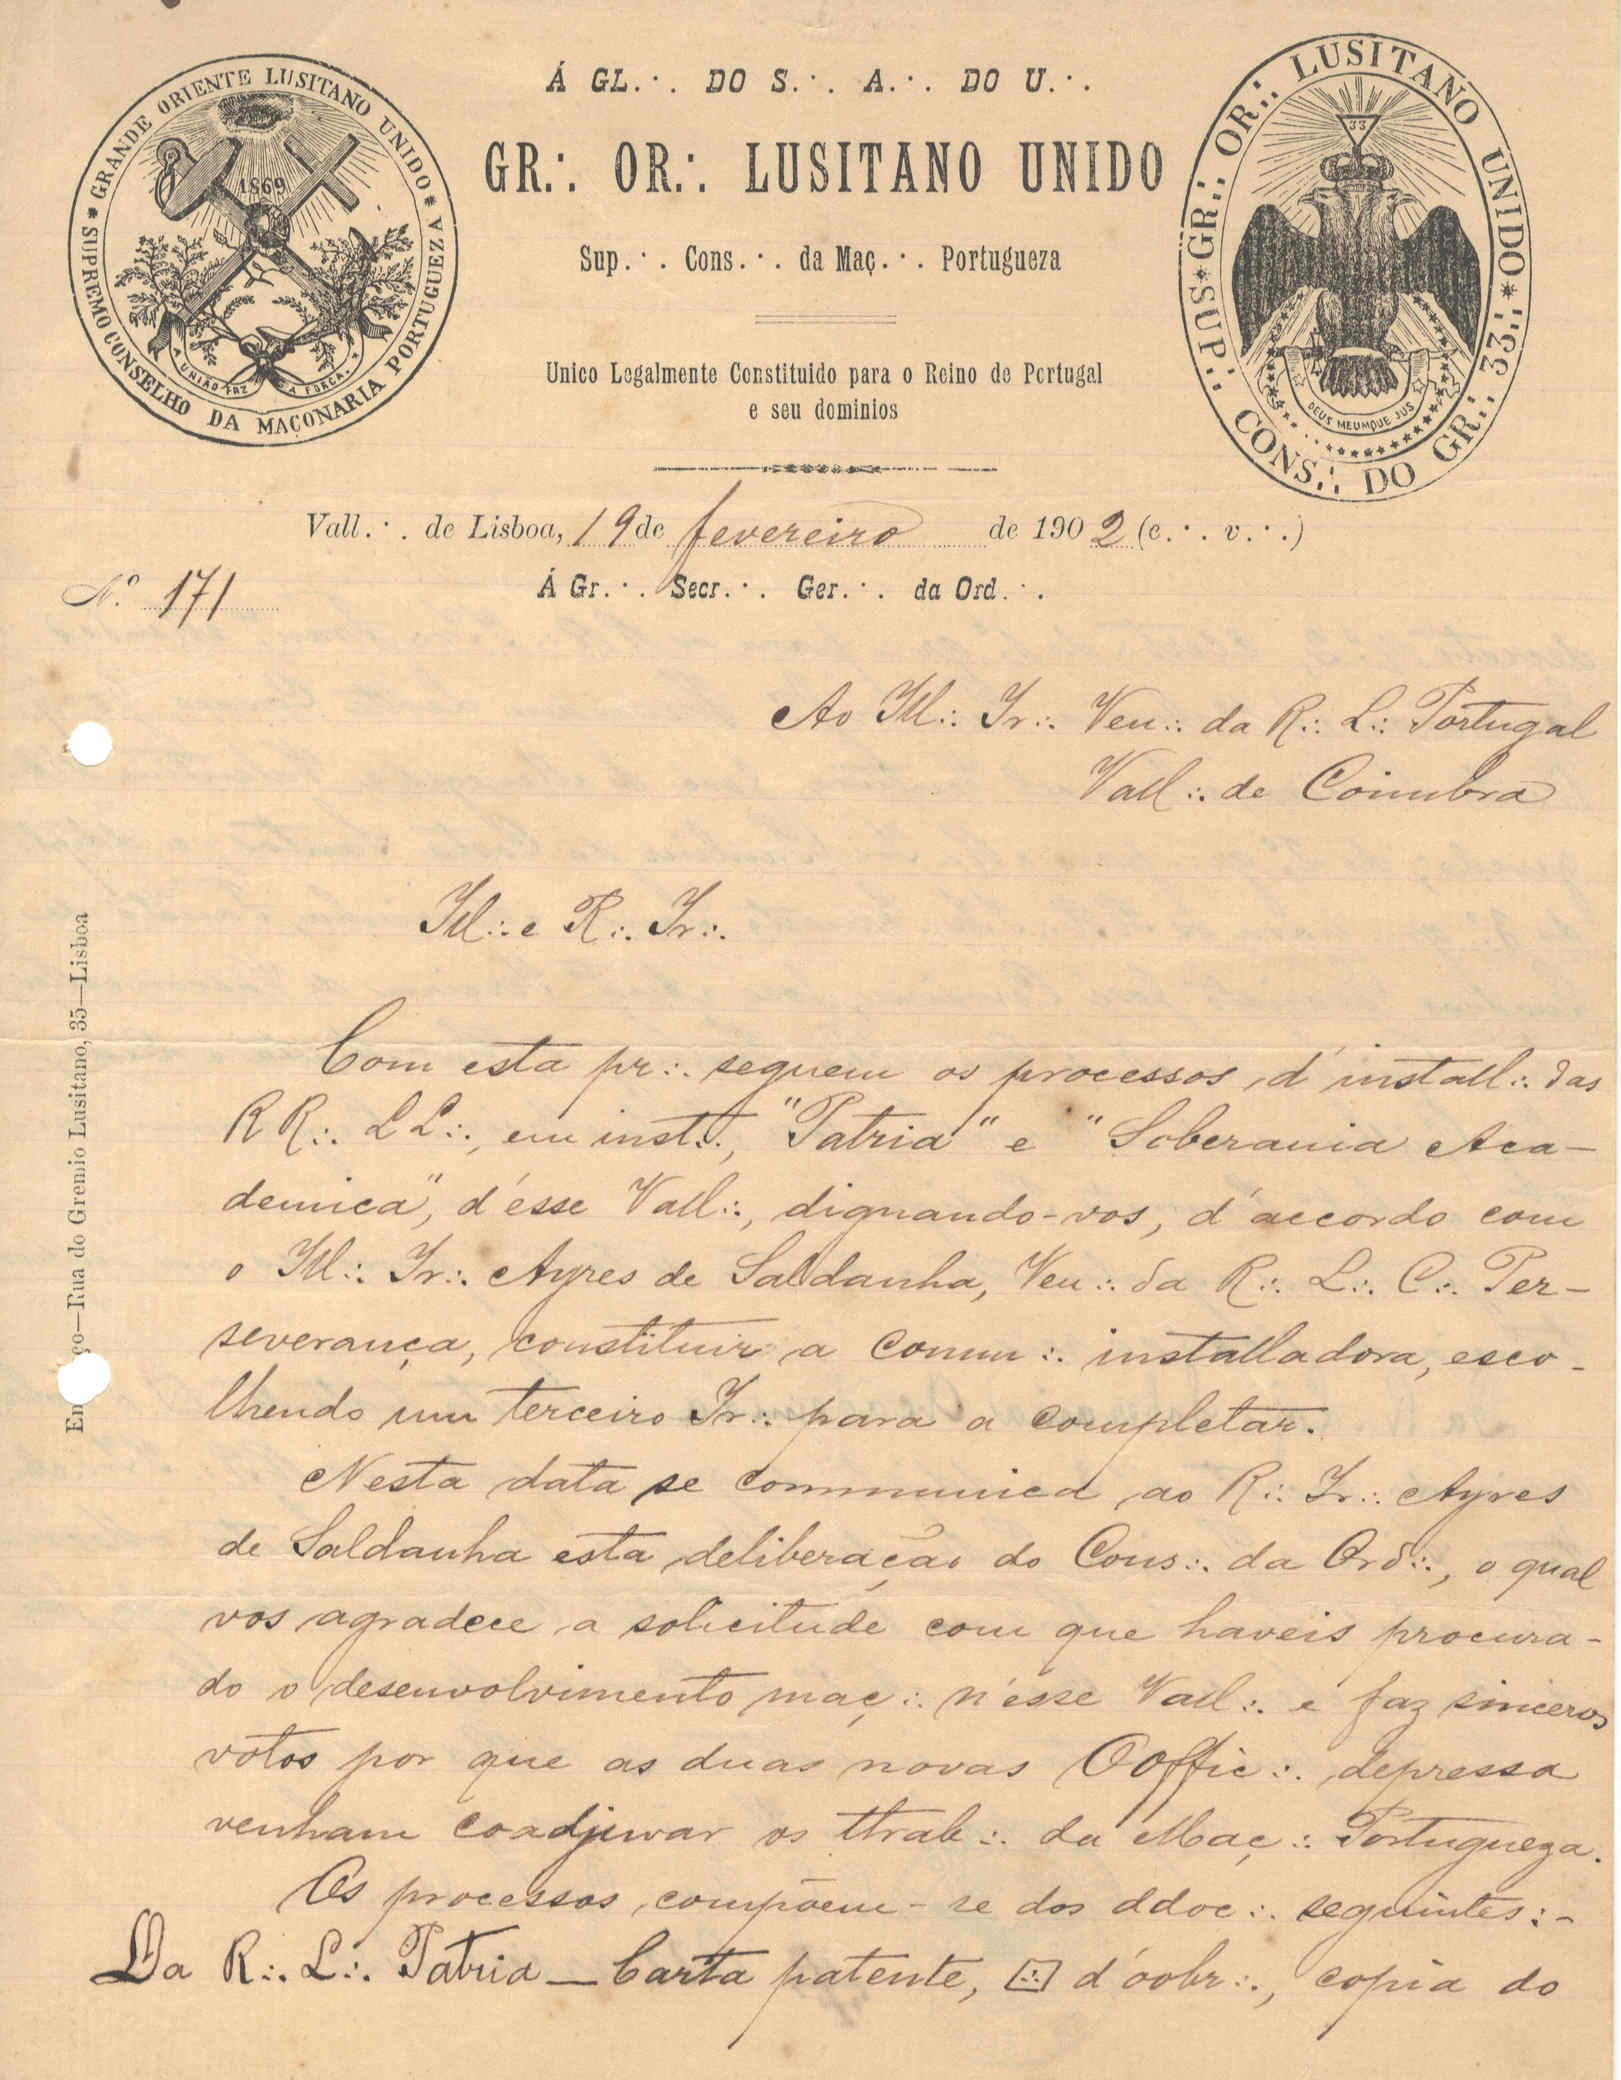 GRANDE ORIENTE LUSITANO UNIDO * SUPREMO CONSELHO DA MAÇONARIA PORTUGUEZA *
1869
A UNIÃO FAZ A FORÇA.
Á GL.·. DO S.·. A.·. DO U.·.
GR.·. OR.·. LUSITANO UNIDO
Sup.·. Cons.·. da Maç.·. Portugueza
Unico Legalmente Constituido para o Reino de Portugal
e seu dominios
SUP.·. CONS.·. DO GR.·. 33.·. * GR.·. OR.·. LUSITANO UNIDO *
33
DEUS MEUMQUE JUS
Vall.·. de Lisboa, 19 de fevereiro de 1902 (e.·. v.·.)
N.º 171
Á Gr.·. Secr.·. Ger.·. da Ord.·.
Ao Ill.·. Ir.·. Ven.·. da R.·. L.·. Portugal
Vall.·. de Coimbra
Ill.·. e R.·. Ir.·.
Com esta pr.·. seguem os processos d'install.·. das
RR.·. LL.·., em inst.·., "Patria" e "Soberania Aca-
demica", d'ésse Vall.·., dignando-vos, d'accordo com
o Ill.·. Ir.·. Ayres de Saldanha, Ven.·. da R.·. L.·. C.·. Per-
severança, constituir a Comm.·. installadora, esco-
lhendo um terceiro Ir.·. para a completar.
Nesta data se communica ao R.·. Ir.·. Ayres
de Saldanha esta deliberação do Cons.·. da Ord.·., o qual
vos agradece a solicitude com que haveis procura-
do o desenvolvimento maç.·. n'ésse Vall.·. e faz sinceros
votos por que as duas novas Ooffic.·. depressa
venham coadjuvar os ttrab.·. da Maç.·. Portugueza.
Os processos compõem-se dos ddoc.·. seguintes:-
Da R.·. L.·. Patria — Carta patente, d'oobr.·., copia do
Rua do Gremio Lusitano, 35—Lisboa